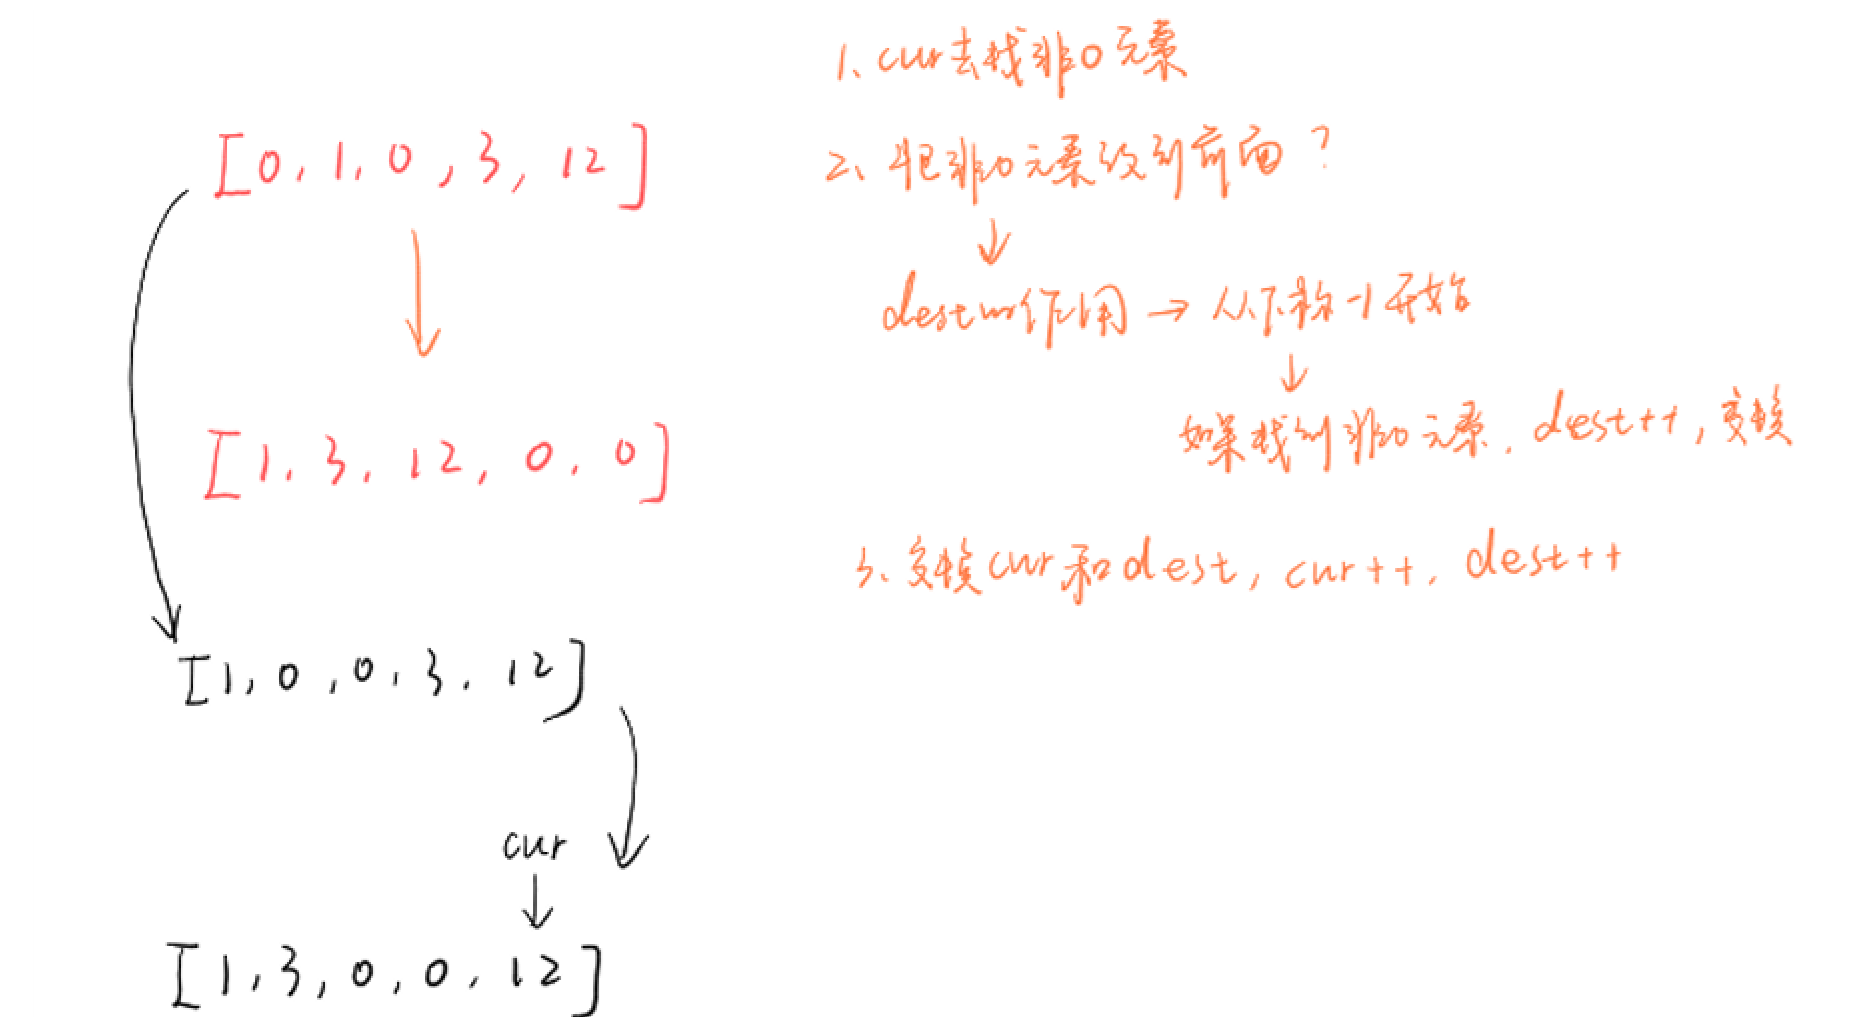 1、cur去找非0元素
[0,1,0,3,12]
2、把非0元素放到前面?
↓
↓
dest的作用→从下标-1开始
↓
如果找到非0元素,dest++,交换
[1,3,12,0,0]
3、交换cur和dest,cur++,dest++
[1,0,0,3,12]
cur
↓
[1,3,0,0,12]